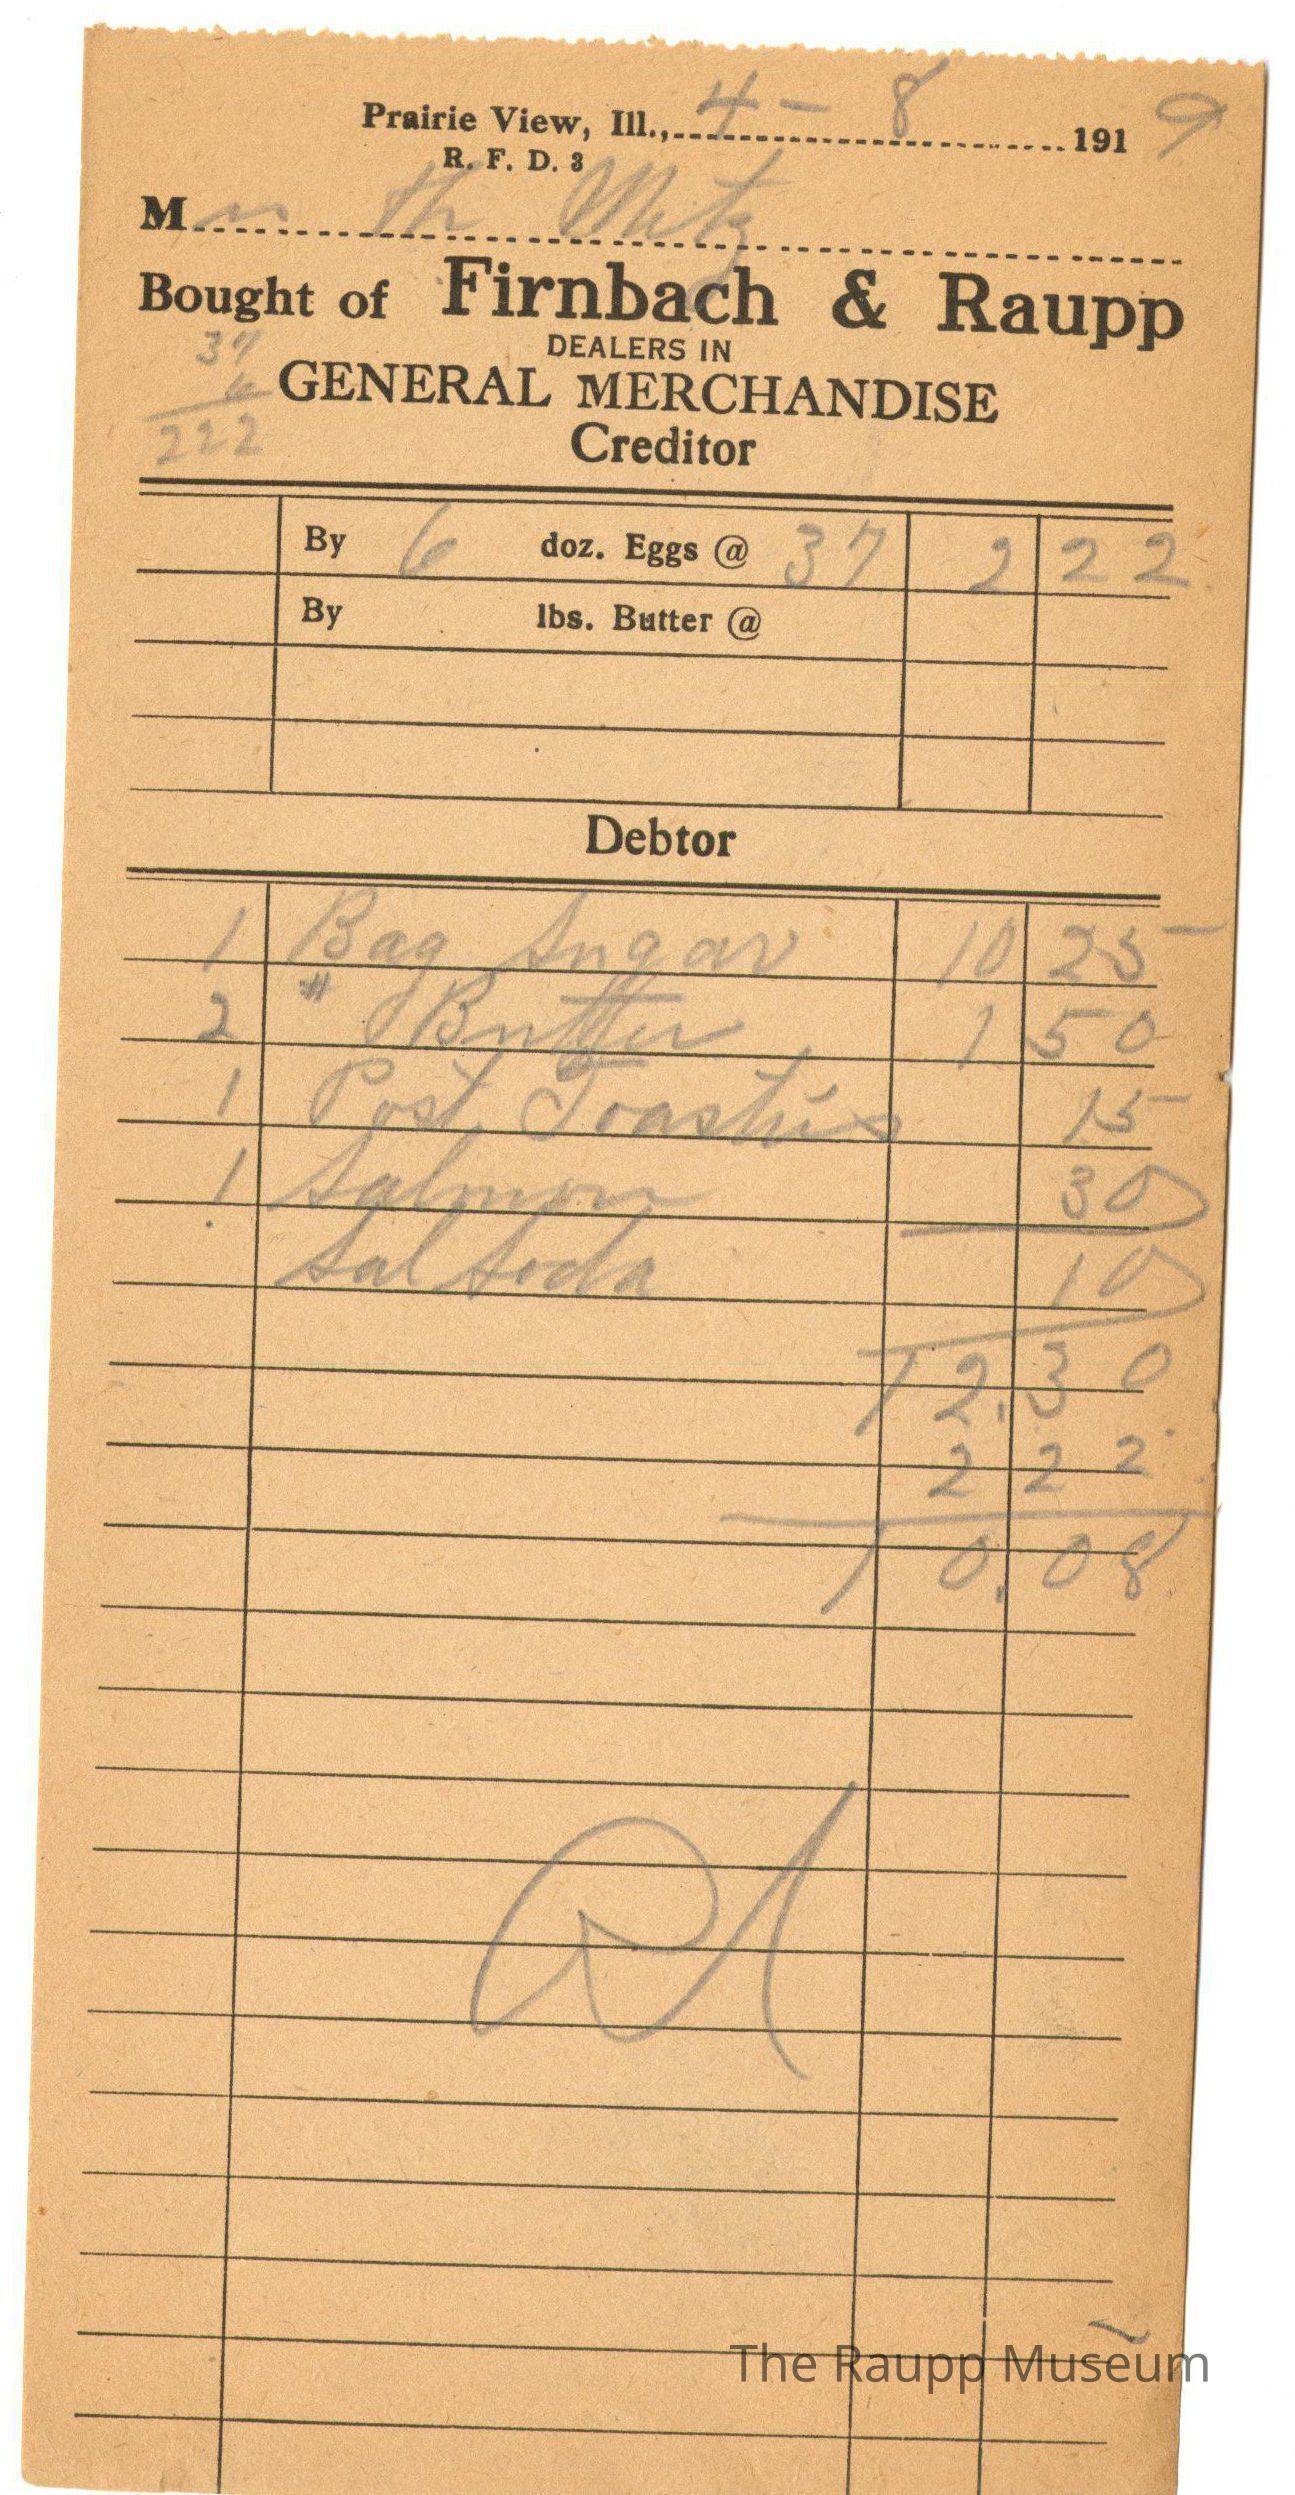 Prairie View, Ill., 4 - 8 1919
R. F. D. 3
M Metz
Bought of Firnbach & Raupp
DEALERS IN
GENERAL MERCHANDISE
37
6
222
Creditor
By 6 doz. Eggs @ 37 2 22
By lbs. Butter @
Debtor
1 Bag Sugar 10 25
2 # Butter 1 50
1 Post Toasties 15
1 Salmon 30
Sal Soda 10
12.30
2 22
10.08
The Raupp Museum